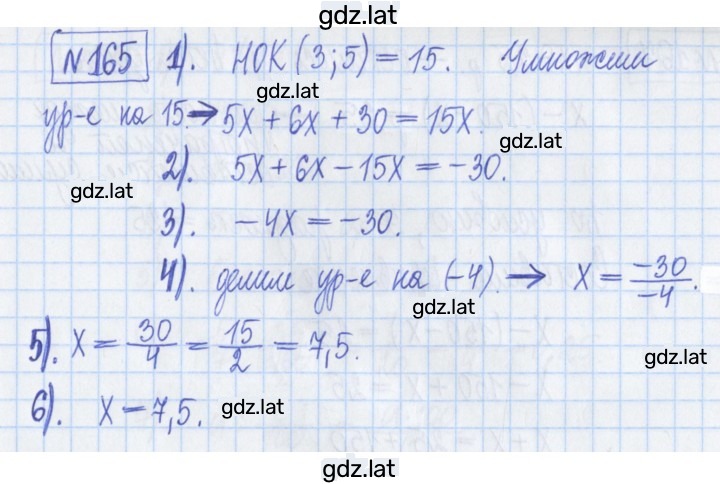 gdz.lat
№165 1). НОК (3;5) = 15. Умножим
gdz.lat
ур-е на 15. → 5x + 6x + 30 = 15x.
gdz.lat
2). 5x + 6x - 15x = -30.
gdz.lat
3). -4x = -30.
4). делим ур-е на (-4). → x = \frac{-30}{-4}.
gdz.lat
5). x = \frac{30}{4} = \frac{15}{2} = 7,5.
gdz.lat
6). x = 7,5.
gdz.lat
gdz.lat